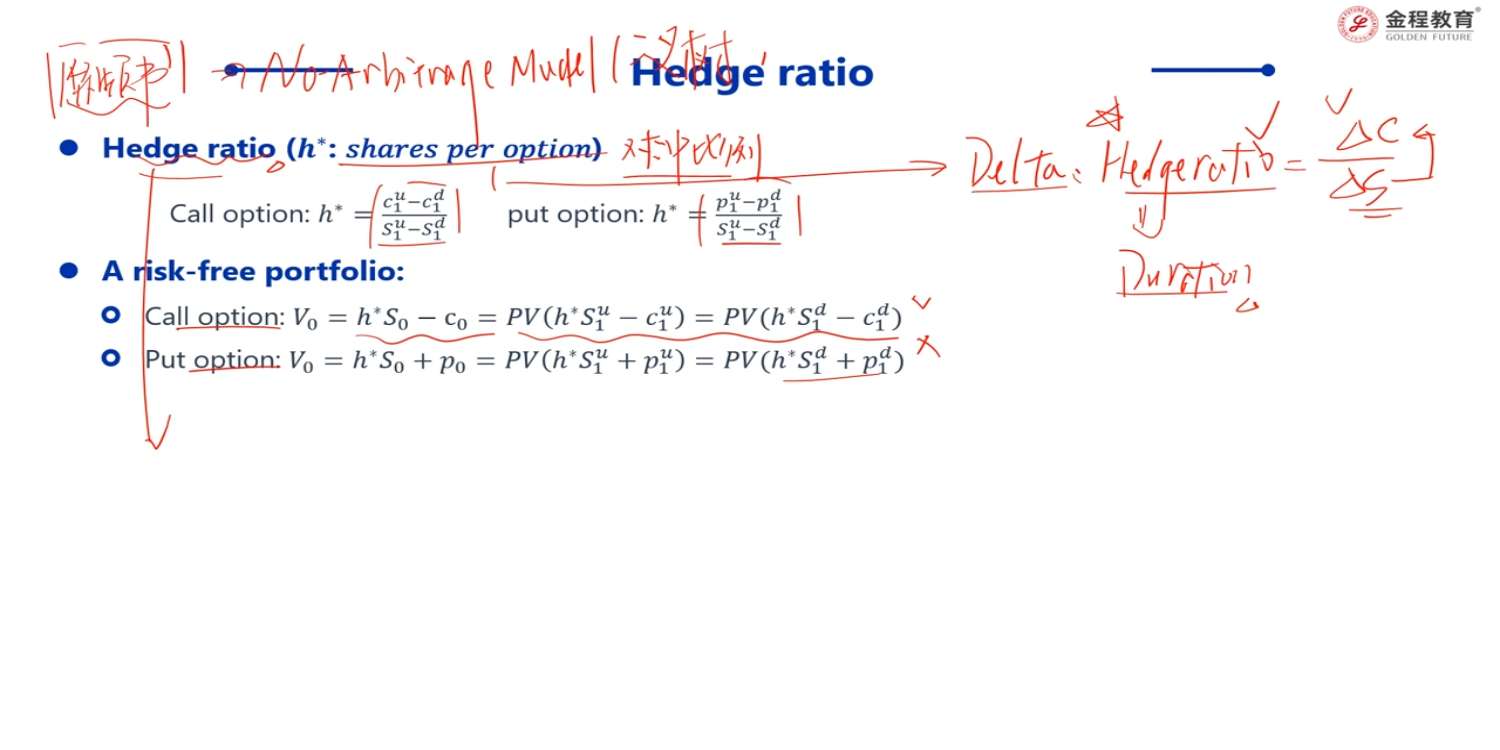 金程教育
GOLDEN FUTURE
→ No-Arbitrage Model
Hedge ratio
Hedge ratio (h*: shares per option) 对冲比例
Delta: Hedge ratio = ΔC/ΔS
Call option: h* = (c₁ᵘ−c₁ᵈ)/(S₁ᵘ−S₁ᵈ) put option: h* = (p₁ᵘ−p₁ᵈ)/(S₁ᵘ−S₁ᵈ)
Duration
A risk-free portfolio:
Call option: V₀ = h*S₀ − c₀ = PV(h*S₁ᵘ − c₁ᵘ) = PV(h*S₁ᵈ − c₁ᵈ)
Put option: V₀ = h*S₀ + p₀ = PV(h*S₁ᵘ + p₁ᵘ) = PV(h*S₁ᵈ + p₁ᵈ)